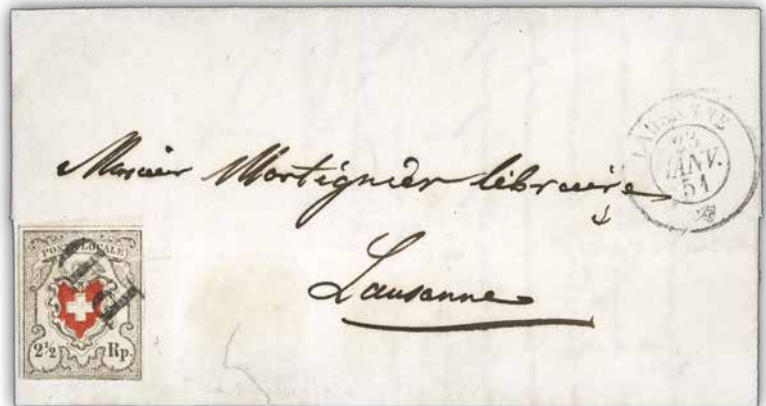 LAUSANNE
23
JANV.
51
Monsieur Martignier libraire
Lausanne
POSTE LOCALE
2½ Rp.